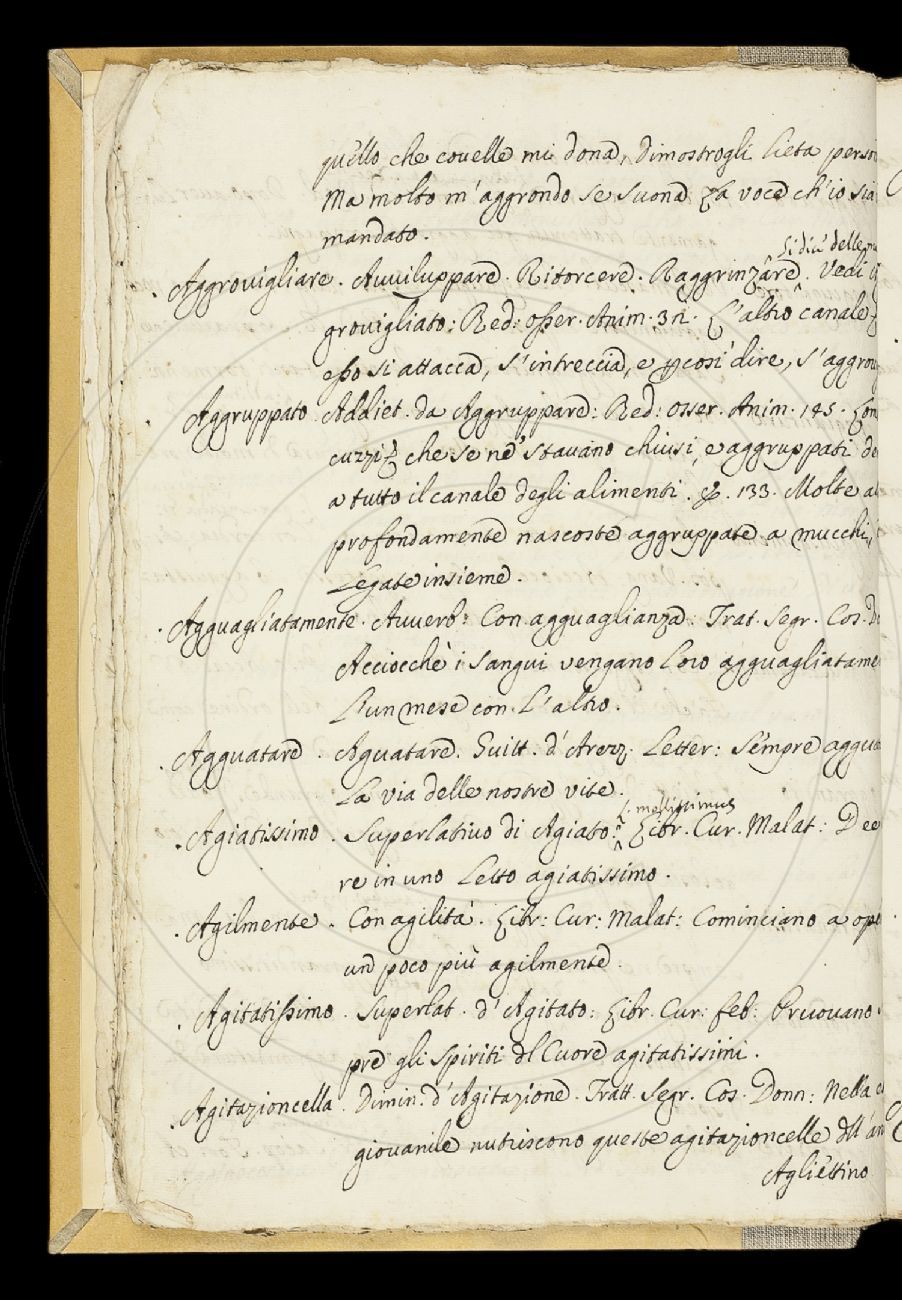 quello che covelle mi dona, dimostrogli lieta person
Ma molto m'aggrondo se suona La voce ch'io sia
mandato.
si dia' delle ma
Aggrovigliare. Avviluppare. Ritorcere. Raggrinzare. Vedi
grovigliato: Red: osser. Anim. 3n. L'altro canale
esso si attacca, s'intreccia, e p cosi' dire, s'aggrov
Aggruppato. Addiet. da Aggruppare: Red: osser. Anim. 145. Lom
cuzzi che se ne stavano chiusi, e aggruppati de
a tutto il canale degli alimenti. E 133. Molte al
profondamente nascoste aggruppate a mucchi,
Legate insieme.
Agguagliatamente. Avverb: Con agguaglianza: Trat. Segr. Cos. Do
Acciocchè i sangui vengano loro agguagliatame
L'un mese con L'altro.
Agguatare. Aguatare. Guitt. d'Arezz. Letter: Sempre aggua
La via delle nostre vite.
Agiatissimo. Superlativo di Agiato: Libr. Cur. Malat: Dee
re in uno Letto agiatissimo.
Agilmente. Con agilità. Libr: Cur: Malat: Cominciano a ope
un poco più agilmente.
Agitatissimo. Superlat. d'Agitato: Libr. Cur: feb: Pruovano
pre gli spiriti dl Cuore agitatissimi.
Agitazioncella. Dimin: d'Agitazione. Tratt. Segr. Cos. Donn: Nella e
giovanile nutriscono queste agitazioncelle dll'an
Agliettino